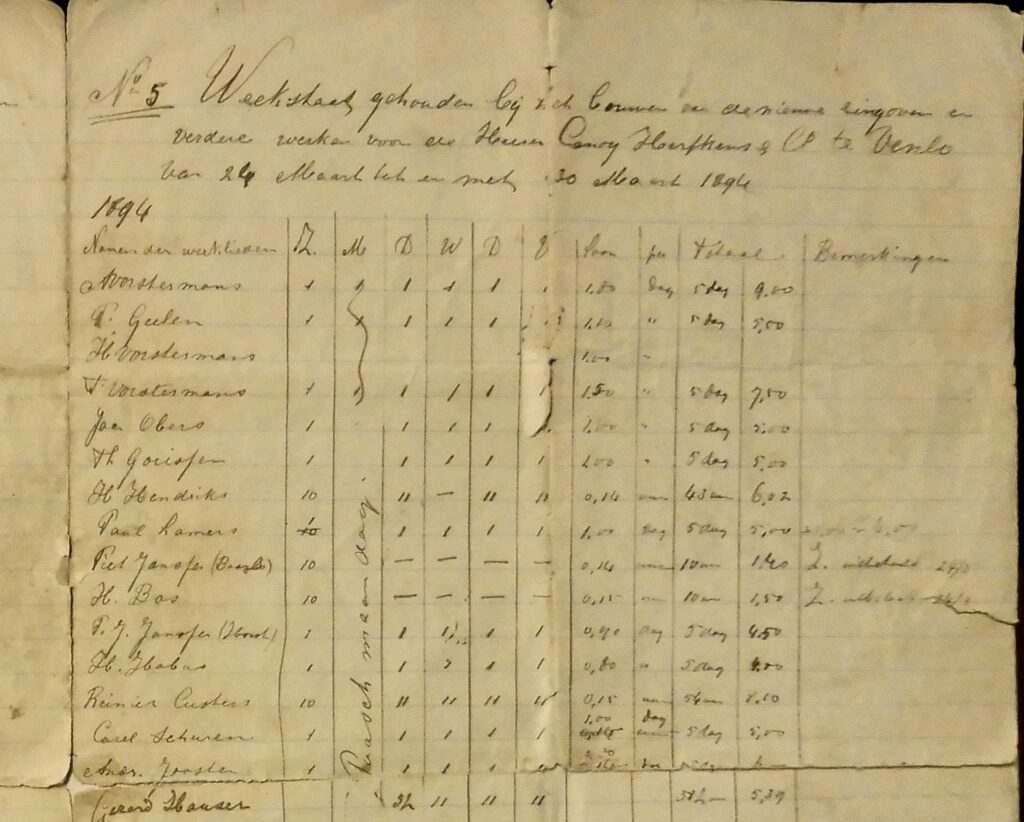 No 5 Weekstaat, gehouden bij het bouwen van de nieuwe ringoven en
verdere werken voor de Heeren Canoy Herfkens & C te Venlo
van 24 Maart tot en met 30 Maart 1894
1894
Namen der werklieden Z. M D W D V Loon per Totaal Bemerkingen
A Vorstermans 1 1 1 1 1 1 1.80 dag 5 dag 9,00
P. Geelen 1 1 1 1 1 1,00 " 5 dag 5,00
H Vorstermans 1.00 "
T Vorstermans 1 1 1 1 1 1 1.50 " 5 dag 7,50
Jan Obers 1 1 1 1 1 1,00 " 5 dag 5.00
Th Goossen 1 1 1 1 1 1.00 " 5 dag 5,00
H Hendriks 10 11 — 11 11 0,14 uur 43 uur 6,02
Paul Lamers 1 1 1 1 1 1,00 dag 5 dag 5,00
Piet Janssen 10 — — — — 0,14 uur 10 uur 1.40 Z.
H. Bos 10 — — — — 0,15 uur 10 uur 1,50 Z.
P. J. Janssen (Horst) 1 1 1 1 1 0,90 dag 5 dag 4.50
H. Habus 1 1 1 1 0,80 " 5 dag 4.00
Reinier Custers 10 11 11 11 11 0,15 uur 54 uur 8.10
Carel Schuren 1 1 1 1 1 1,00 dag 5 dag 5,00
Andr. Joosten 1 1 1 1
Gerard Hauser 11 11 11 5,39
Paasch maandag.